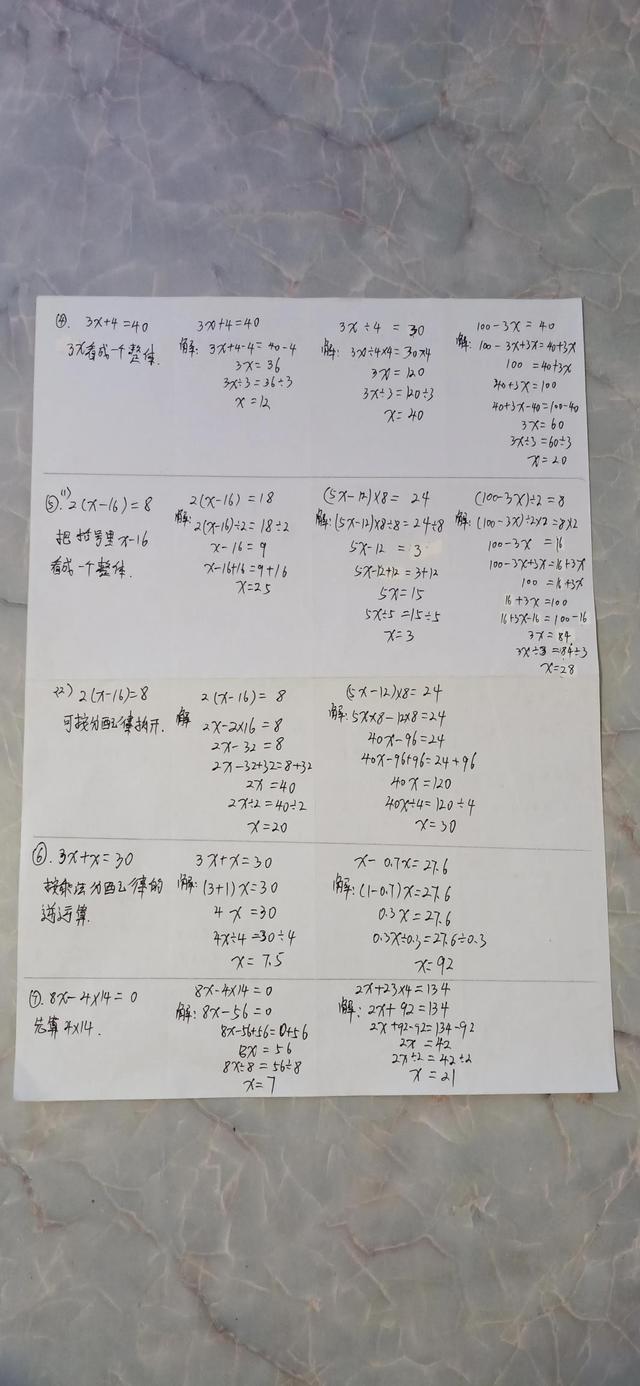 ④. 3x+4=40
3x看成一个整体.
3x+4=40
解: 3x+4-4=40-4
3x=36
3x÷3=36÷3
x=12
3x÷4=30
解: 3x÷4×4=30×4
3x=120
3x÷3=120÷3
x=40
100-3x=40
解: 100-3x+3x=40+3x
100=40+3x
40+3x=100
40+3x-40=100-40
3x=60
3x÷3=60÷3
x=20
⑤.(1) 2(x-16)=8
把括号里x-16
看成一个整体.
2(x-16)=18
解: 2(x-16)÷2=18÷2
x-16=9
x-16+16=9+16
x=25
(5x-12)×8=24
解: (5x-12)×8÷8=24÷8
5x-12=3
5x-12+12=3+12
5x=15
5x÷5=15÷5
x=3
(100-3x)÷2=8
解: (100-3x)÷2×2=8×2
100-3x=16
100-3x+3x=16+3x
100=16+3x
16+3x=100
16+3x-16=100-16
3x=84
3x÷3=84÷3
x=28
(2) 2(x-16)=8
可按分配律拆开.
2(x-16)=8
解 2x-2×16=8
2x-32=8
2x-32+32=8+32
2x=40
2x÷2=40÷2
x=20
(5x-12)×8=24
解: 5x×8-12×8=24
40x-96=24
40x-96+96=24+96
40x=120
40x÷4=120÷4
x=30
⑥. 3x+x=30
按乘法分配律的
逆运算.
3x+x=30
解: (3+1)x=30
4x=30
4x÷4=30÷4
x=7.5
x-0.7x=27.6
解: (1-0.7)x=27.6
0.3x=27.6
0.3x÷0.3=27.6÷0.3
x=92
⑦. 8x-4×14=0
先算4×14.
8x-4×14=0
解: 8x-56=0
8x-56+56=0+56
8x=56
8x÷8=56÷8
x=7
2x+23×4=134
解: 2x+92=134
2x+92-92=134-92
2x=42
2x÷2=42÷2
x=21